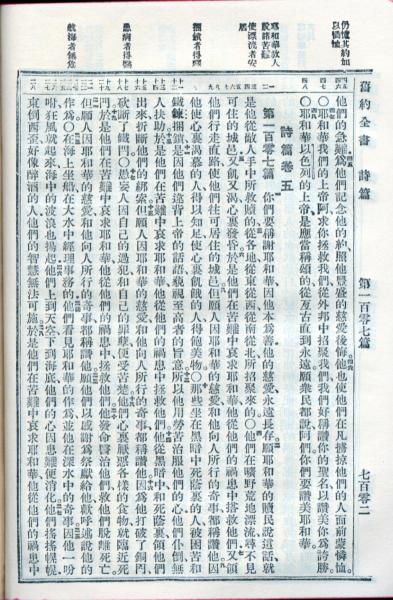 舊約全書 詩篇 第一百零七篇 七百零二
耶和華救人脫諸苦難
使漂流者安居
捆鎖者得釋
患病者得醫
航海者無危
他們的急難爲他們記念他的約照他豐盛的慈愛後悔他也使他們在凡擄掠他們的人面前蒙憐恤。
○耶和華我們的上帝阿求你拯救我們從外邦中招聚我們我們好稱讚你的聖名以讚美你爲誇勝
○耶和華以色列的上帝是應當稱頌的從亙古直到永遠願衆民都說阿們你們要讚美耶和華
詩篇卷五
第一百零七篇 你們要稱謝耶和華因他本爲善他的慈愛永遠長存願耶和華的贖民說這話就
是他從敵人手中所救贖的從各地從東從西從南從北所招聚來的○他們在曠野荒地漂流尋不見
可住的城邑又飢又渴心裏發昏於是他們在苦難中哀求耶和華他從他們的禍患中搭救他們又領
他們行走直路使他們往可居住的城邑但願人因耶和華的慈愛和他向人所行的奇事都稱讚他因
他使心裏渴慕的人得以知足使心裏飢餓的人得飽美物○那些坐在黑暗中死蔭裏的人被困苦和
鐵鍊捆鎖是因他們違背上帝的話語藐視至高者的旨意所以他用勞苦治服他們的心他們仆倒無
人扶助於是他們在苦難中哀求耶和華他從他們的禍患中拯救他們他從黑暗中和死蔭裏領他們
出來折斷他們的綁索但願人因耶和華的慈愛和他向人所行的奇事都稱讚他因爲他打破了銅門
砍斷了鐵門○愚妄人因自己的過犯和自己的罪孽便受苦楚他們心裏厭惡各樣的食物就臨近死
門於是他們在苦難中哀求耶和華他從他們的禍患中拯救他們他發命醫治他們救他們脫離死亡
但願人因耶和華的慈愛和他向人所行的奇事都稱讚他願他們以感謝爲祭獻給他歡呼述說他的
作爲○在海上坐船在大水中經理事務的他們看見耶和華的作爲並他在深水中的奇事因他一吩
咐狂風就起來海中的波浪也揚起他們上到天空下到海底他們的心因患難便消化他們搖搖幌幌
東倒西歪好像醉酒的人他們的智慧無法可施於是他們在苦難中哀求耶和華他從他們的禍患中